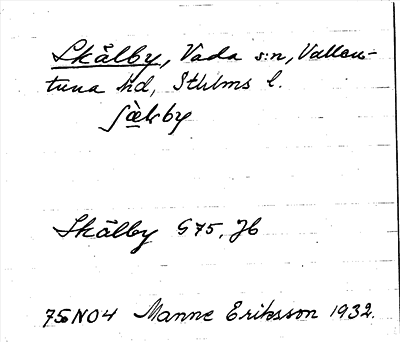 Skålby, Vada s:n, Vallen-
tuna hd, Sthlms l.
Skålby G75, Jb
75NO4 Manne Eriksson 1932.